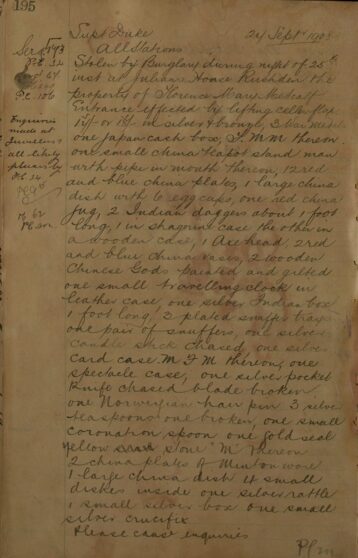 195
Supt Duke 24 Sept 1908
All Stations
Stolen by Burglary during night of 25th
inst at Julians House Rushden the
property of Florence Mary Metcalf
Entrance effected by lifting cellar flap
in silver & bronze, 3
one japan cash box, F. M M thereon
one small china teapot stand man
with pipe in mouth thereon, 12 red
and blue china plates, 1 large china
dish with 6 egg cups, one red china
Jug, 2 Indian daggers about 1 foot
long, 1 in shagreen case the other in
a wooden case, 1 Axe head, 2 red
and blue china vases, 2 wooden
Chinese Gods painted and gilted
one small travelling clock in
leather case, one silver Indian box
1 foot long, 2 plated snuffer trays
one pair of snuffers, one silver
candle stick chased, one silver
card case M F M thereon, one
spectacle case, one silver pocket
knife chased blade broken
one Norwegian hair pin 3 silver
teaspoons one broken, one small
coronation spoon one gold seal
yellow stone M thereon
2 china plates of Minton ware
1 large china dish 4 small
dishes inside one silver rattle
1 small silver box one small
silver crucifix
Please cause enquiries
Sergt
PC 106
Enquiries
made at
Jewellers
all likely
places by
PC 24